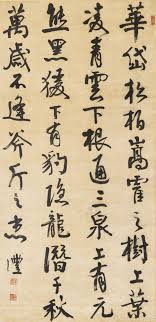 華岱松柏嵩霍之樹上葉
凌青雲下根通三泉上有元
熊黑猨下有豹隱龍潛千秋
萬歲不逢斧斤之患